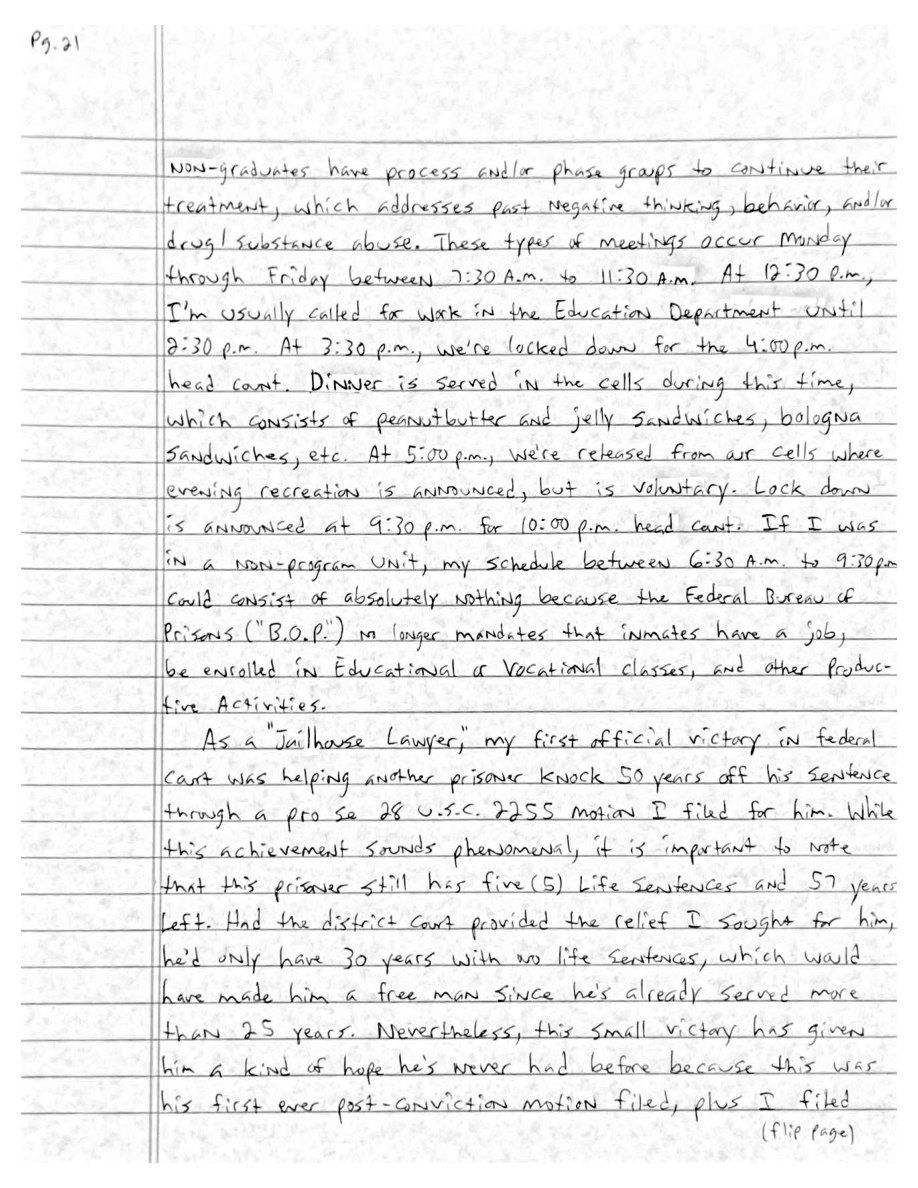 Pg. 21
Non-graduates have process and/or phase groups to continue their
treatment, which addresses past negative thinking, behavior, and/or
drug/substance abuse. These types of meetings occur Monday
through Friday between 7:30 A.m. to 11:30 A.m. At 12:30 P.m.,
I'm usually called for work in the Education Department until
2:30 p.m. At 3:30 p.m., we're locked down for the 4:00 p.m.
head count. Dinner is served in the cells during this time,
which consists of peanutbutter and jelly sandwiches, bologna
sandwiches, etc. At 5:00 p.m., we're released from our cells where
evening recreation is announced, but is voluntary. Lock down
is announced at 9:30 p.m. for 10:00 p.m. head count. If I was
in a non-program unit, my schedule between 6:30 A.m. to 9:30 p.m
could consist of absolutely nothing because the Federal Bureau of
Prisons ("B.O.P.") no longer mandates that inmates have a job,
be enrolled in Educational or Vocational classes, and other Produc-
tive Activities.
As a "Jailhouse Lawyer," my first official victory in federal
court was helping another prisoner knock 50 years off his sentence
through a pro se 28 U.S.C. 2255 motion I filed for him. While
this achievement sounds phenomenal, it is important to note
that this prisoner still has five (5) Life Sentences and 57 years
Left. Had the district court provided the relief I sought for him,
he'd only have 30 years with no life sentences, which would
have made him a free man since he's already served more
than 25 years. Nevertheless, this small victory has given
him a kind of hope he's never had before because this was
his first ever post-conviction motion filed, plus I filed
(flip page)